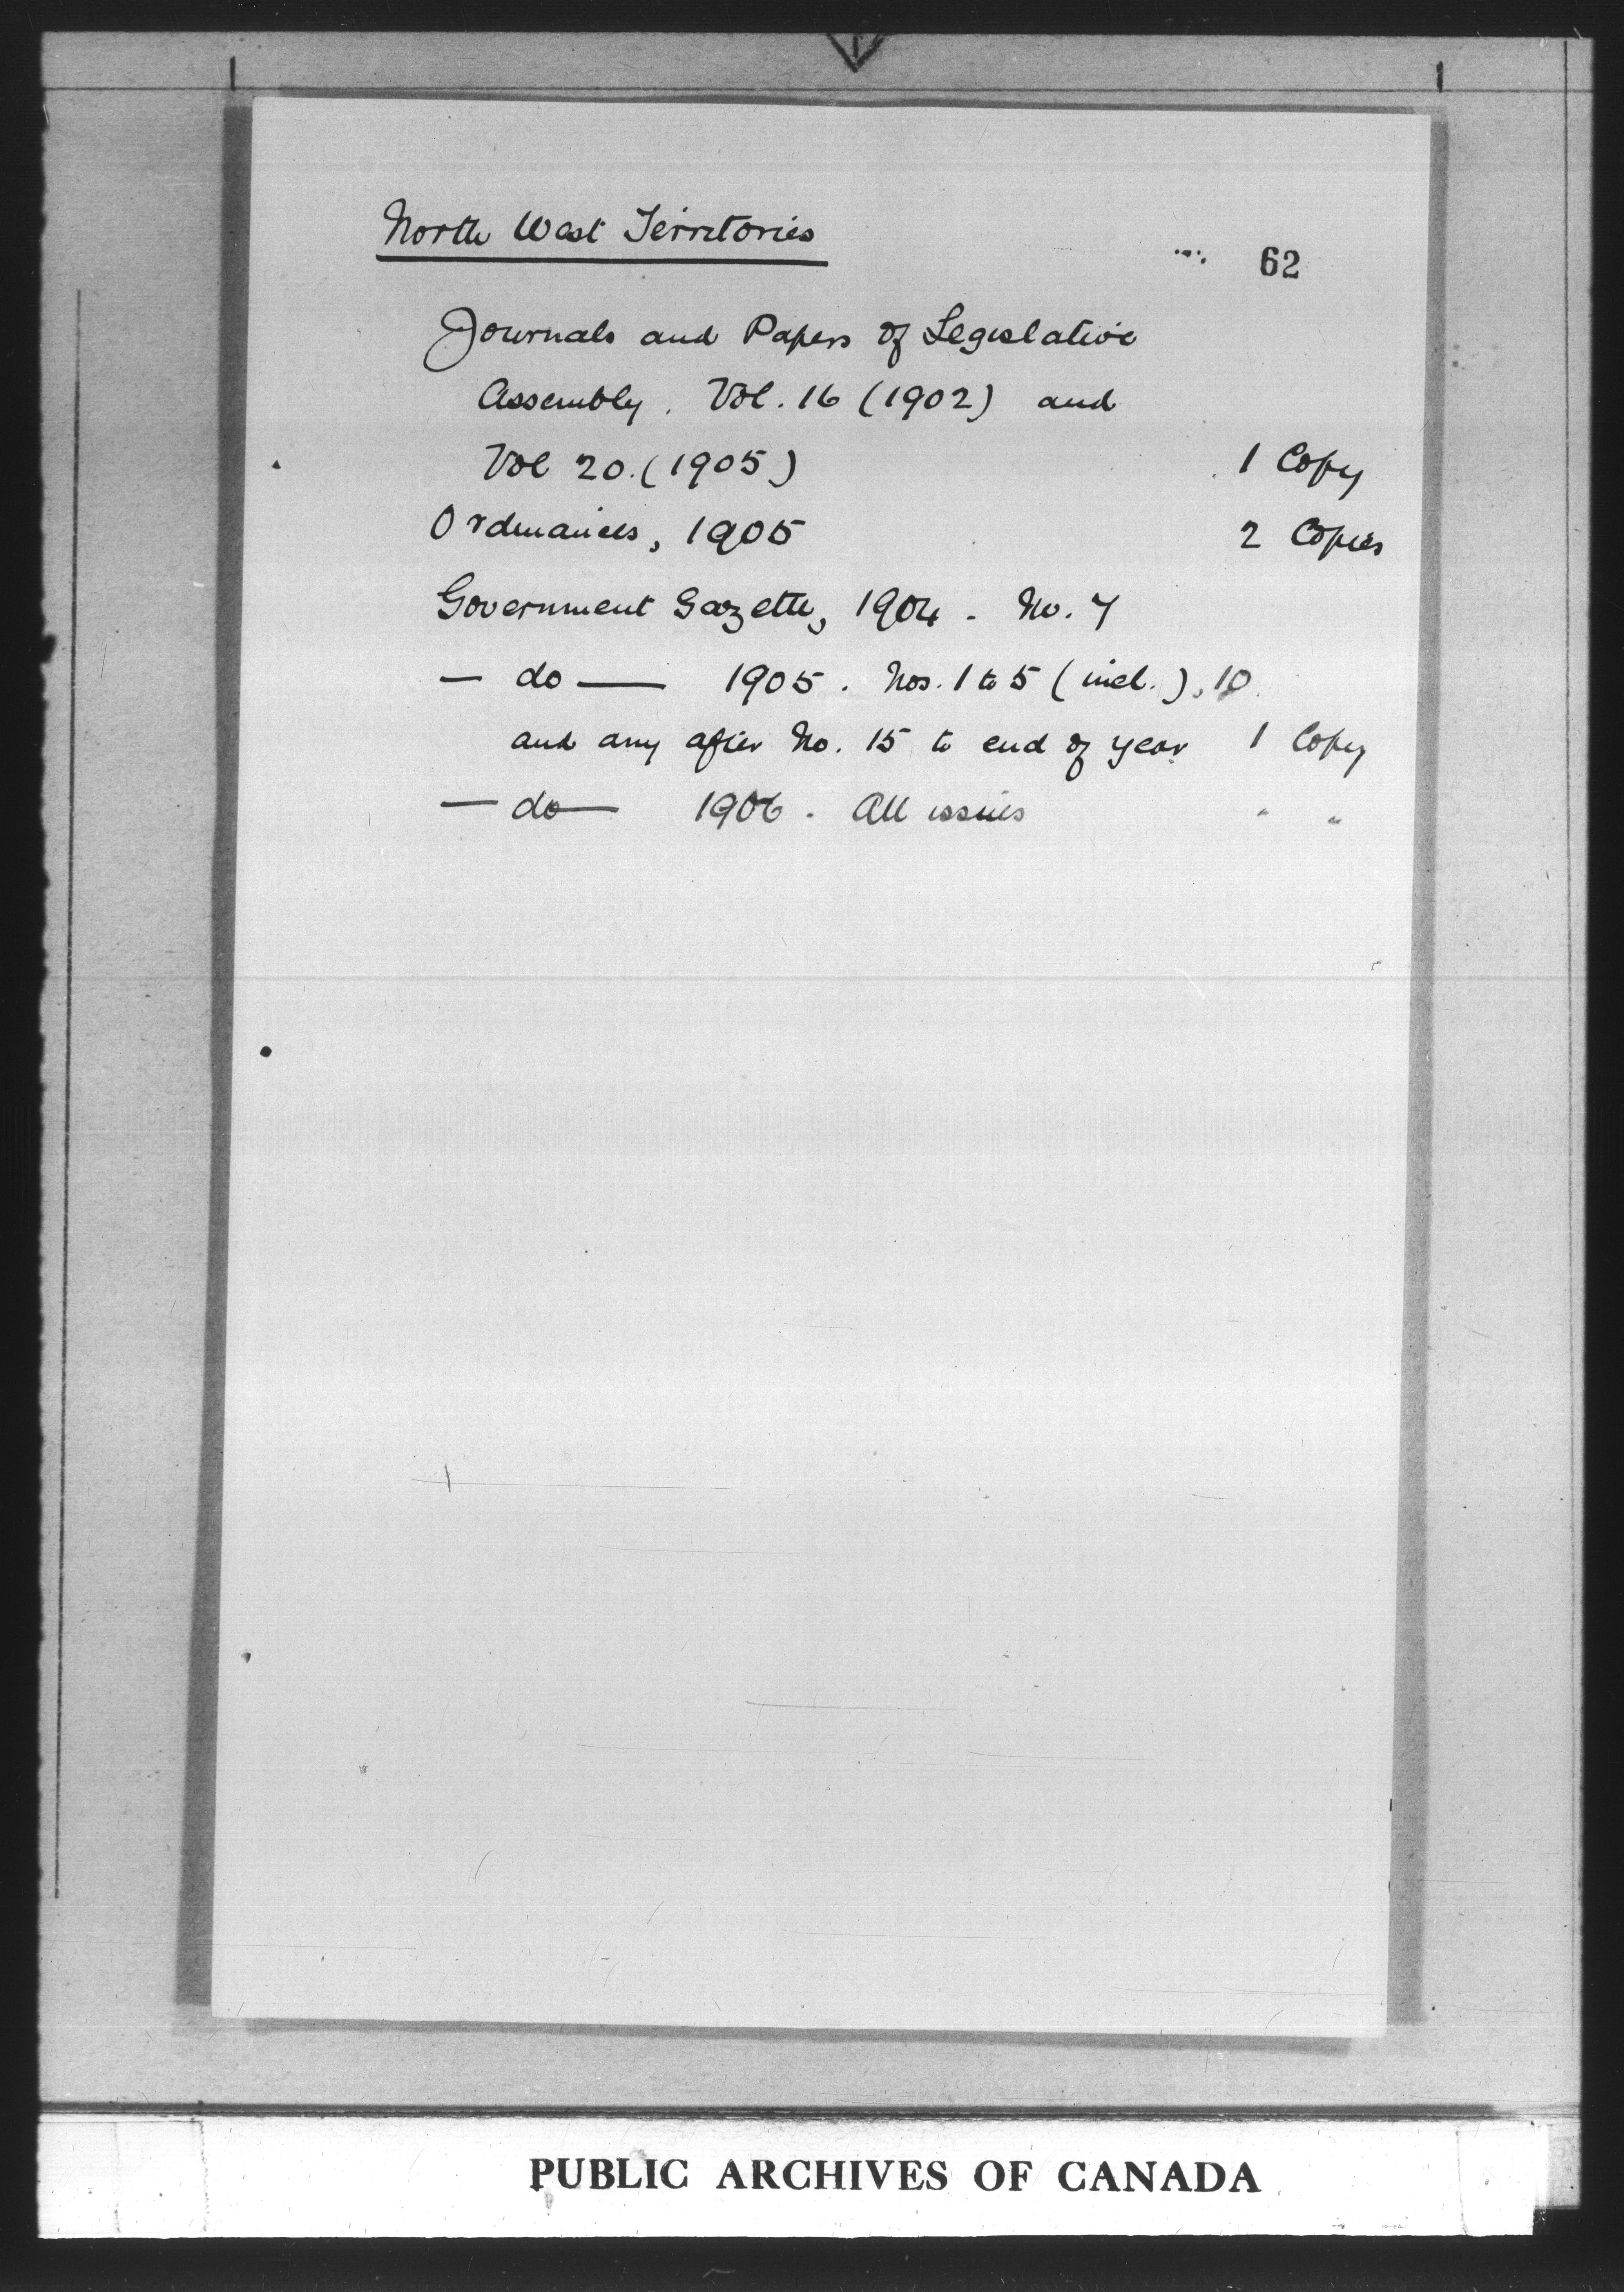 North West Territories
62
Journals and Papers of Legislative
Assembly. Vol. 16 (1902) and
Vol 20. (1905) 1 Copy
Ordinances, 1905 2 Copies
Government Gazette, 1904 - No. 7
— do — 1905. Nos. 1 to 5 (incl.), 10
and any after No. 15 to end of year 1 Copy
— do — 1906. All issues " "
PUBLIC ARCHIVES OF CANADA